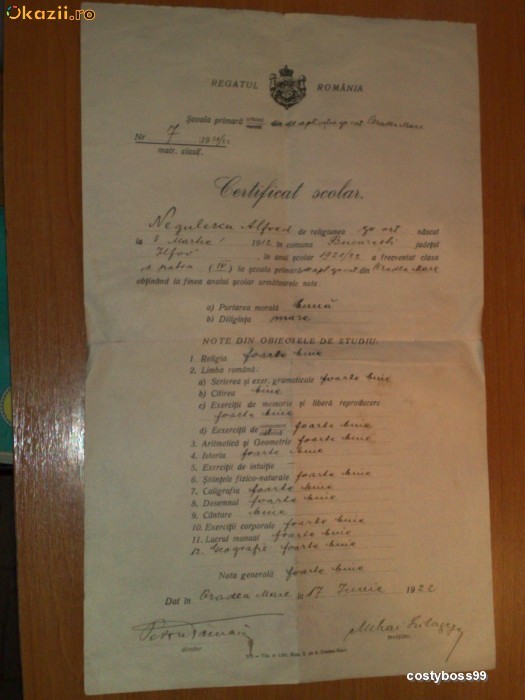 Okazii.ro
REGATUL ROMÂNIA
Școala primară din Oradea Mare
Nr 7 1921/22
matr. clasif.
Certificat școlar.
Negulescu Alfred de religiunea gr. ort născut
la 8 Martie 1912 în comuna București județul
Ilfov, în anul școlar 1921/22 a frecventat clasa
a patra (IV) la școala primară din Oradea Mare
obținând la finea anului școlar următoarele note
a) Purtarea morală bună
b) Diligința mare
NOTE DIN OBIECTELE DE STUDIU:
1. Religia foarte bine
2. Limba română:
a) Scrierea și exer. gramaticale foarte bine
b) Citirea bine
c) Exerciții de memorie și liberă reproducere
foarte bine
d) Exerciții de foarte bine
3. Aritmetică și Geometrie foarte bine
4. Istoria foarte bine
5. Exerciții de intuiție
6. Științele fizico-naturale foarte bine
7. Caligrafia foarte bine
8. Desemnul foarte bine
9. Cântare bine
10. Exerciții corporale foarte bine
11. Lucrul manual foarte bine
12. Geografie foarte bine
Nota generală foarte bine
Dat în Oradea Mare la 17 Iunie 1922
Mihai
director
costyboss99